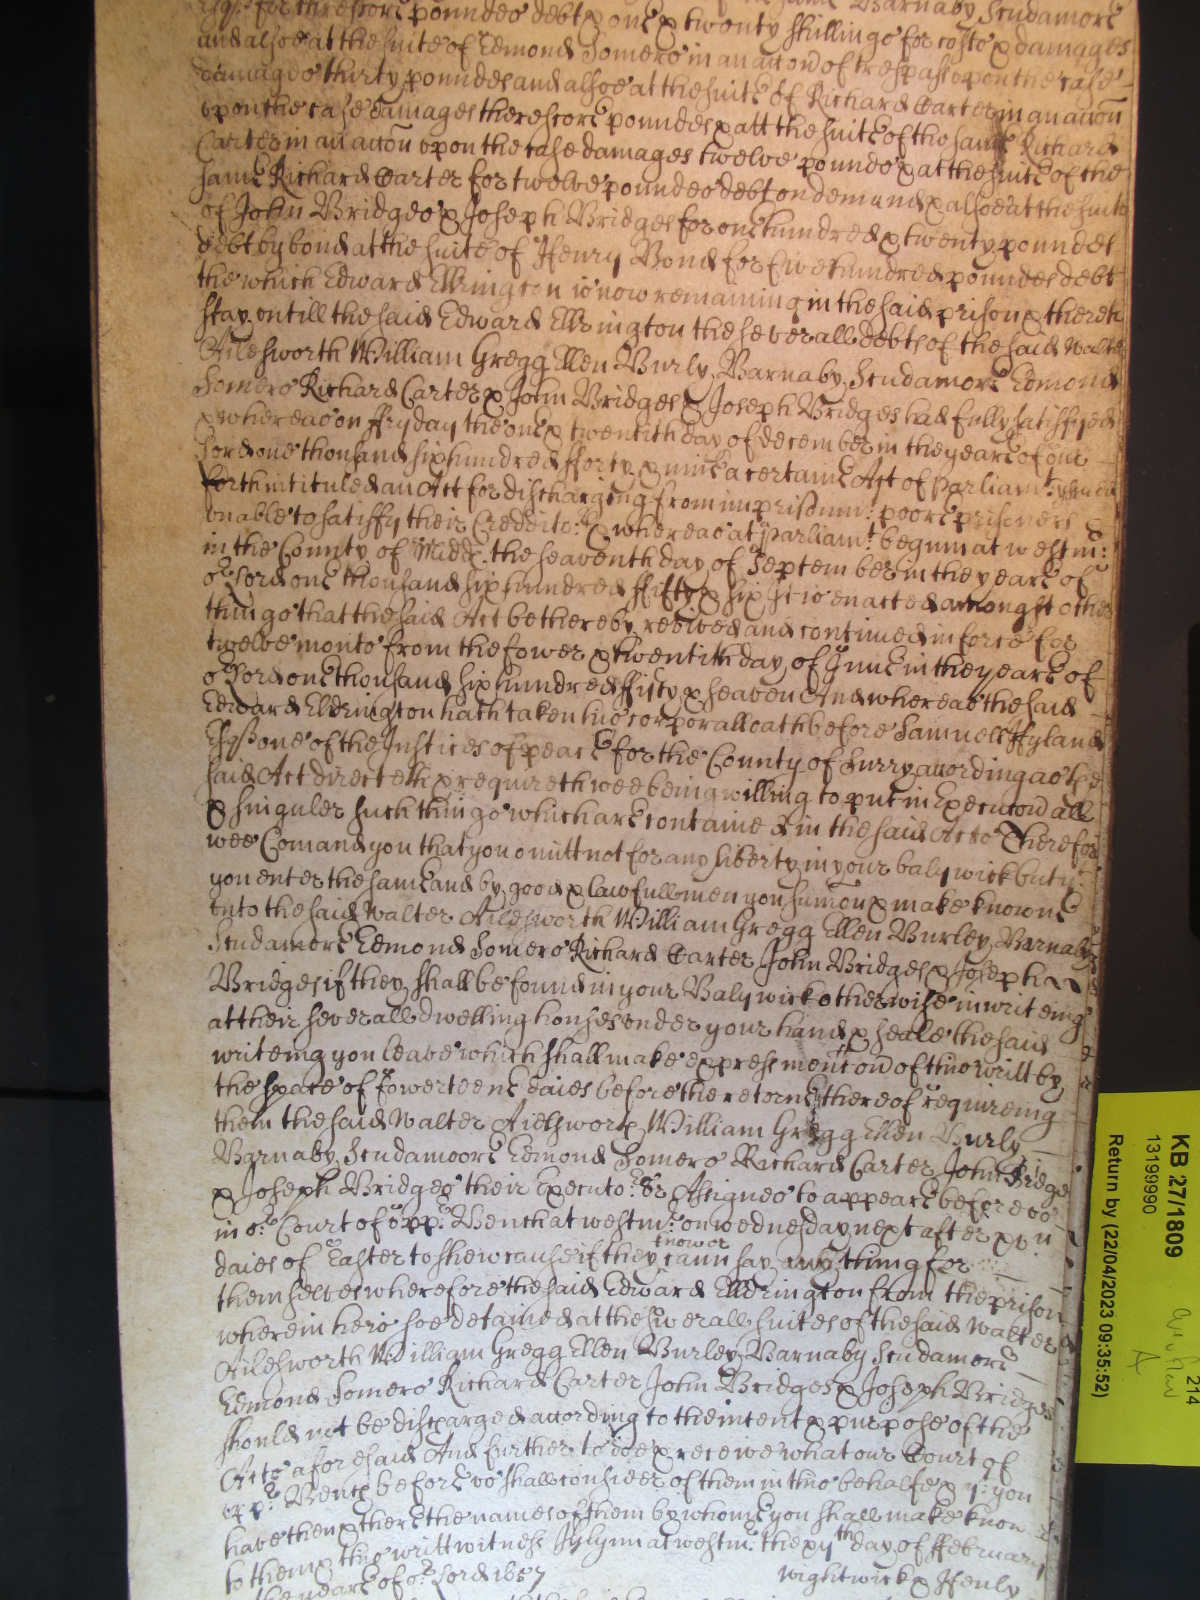 Esqr. for threscore poundes debt & one & twenty shillings for costs & damages
and alsoe at the suite of Edmond Somers in an accon of trespasse upon the case
damages thirty poundes and alsoe at the suite of Richard Carter in an accon
upon the case damages therescore poundes & att the suite of the same Richard
Carter in an accon upon the case damages twelve pounds & at the suite of the
same Richard Carter for twelve poundes debt on demand & alsoe at the suite
of John Bridges & Joseph Bridges for one hundred & twenty poundes
debt by bond at the suite of Henry Bond for five hundred poundes debt
the which Edward Ellrington is now remaining in the said prison & there to
stay untill the said Edward Ellrington the severall debts of the said Walter
Ailesworth William Gregg Ellen Burly Barnaby Scudamore Edmond
Somers Richard Carter & John Bridges & Joseph Bridges had fully satisfyed
& whereas on ffryday the one & twentith day of december in the yeare of our
Lord one thousand six hundred fforty & nine a certaine Act of Parliamt.
forth intituled an Act for discharging from imprisonmt: poore prisoners
unable to satisfy their Creditors & whereas at Parliamt. begun at westmr:
in the County of Middx. the seaventh day of September in the yeare of
or. Lord one thousand six hundred ffifty & six It is enacted amongst other
things that the said Act be thereby revived and continued in force for
twelve monts from the fower & twentith day of June in the yeare of
or. Lord one thousand six hundred ffifty & seaven And whereas the said
Edward Elldrington hath taken his corporall oath before Samuell Hyland
Esqr. one of the Justices of peace for the County of Surry according as the
said Act directeth & requireth wee being willing to put in Execucon all
& singuler such things which are contained in the said Acts Therefore
wee Comand you that you omitt not for any liberty in your balywick but yt.
you enter the same and by good & lawfull men you sumon & make knowne
unto the said Walter Ailesworth William Gregg Ellen Burley Barnaby
Scudamore Edmond Somers Richard Carter John Bridges & Joseph
Bridges if they shall be found in your Balywick otherwise in writeing
at their severall dwelling houses under your hand & seale the said
writeing you leave which shall make expresse mention of this writt by
the space of fowerteene daies before the retorne thereof requireing
them the said Walter Ailesworth William Gregg Ellen Burly
Barnaby Scudamoore Edmond Somers Richard Carter John Bridge
& Joseph Bridges their Executors. or Assignes to appeare before us
in or. Court of upp. Bench at westmr: on wednesday next after xv
daies of Easter to shew cause if they know or cann say any thing for
themselves wherefore the said Edward Elldrington from the prison
wherein he is soe detained at the severall suites of the said Walter
Ailesworth William Gregg Ellen Burley Barnaby Scudamore
Edmond Somers Richard Carter John Bridges & Joseph Bridges
should not be discharged according to the intent & purpose of the
Acts aforesaid And further to doe & receive what our Court of
upp. Bench before us shall consider of them in this behalfe & yt. you
have then & there the names of them by whome you shall make know
to them & this writt witnes J Glynn at westmr. the xijth day of ffebruary
the yeare of or. Lord 1657 Wightwick & Henly
KB 27/1809
13199990
Return by (22/04/2023 09:35:52)
214
A